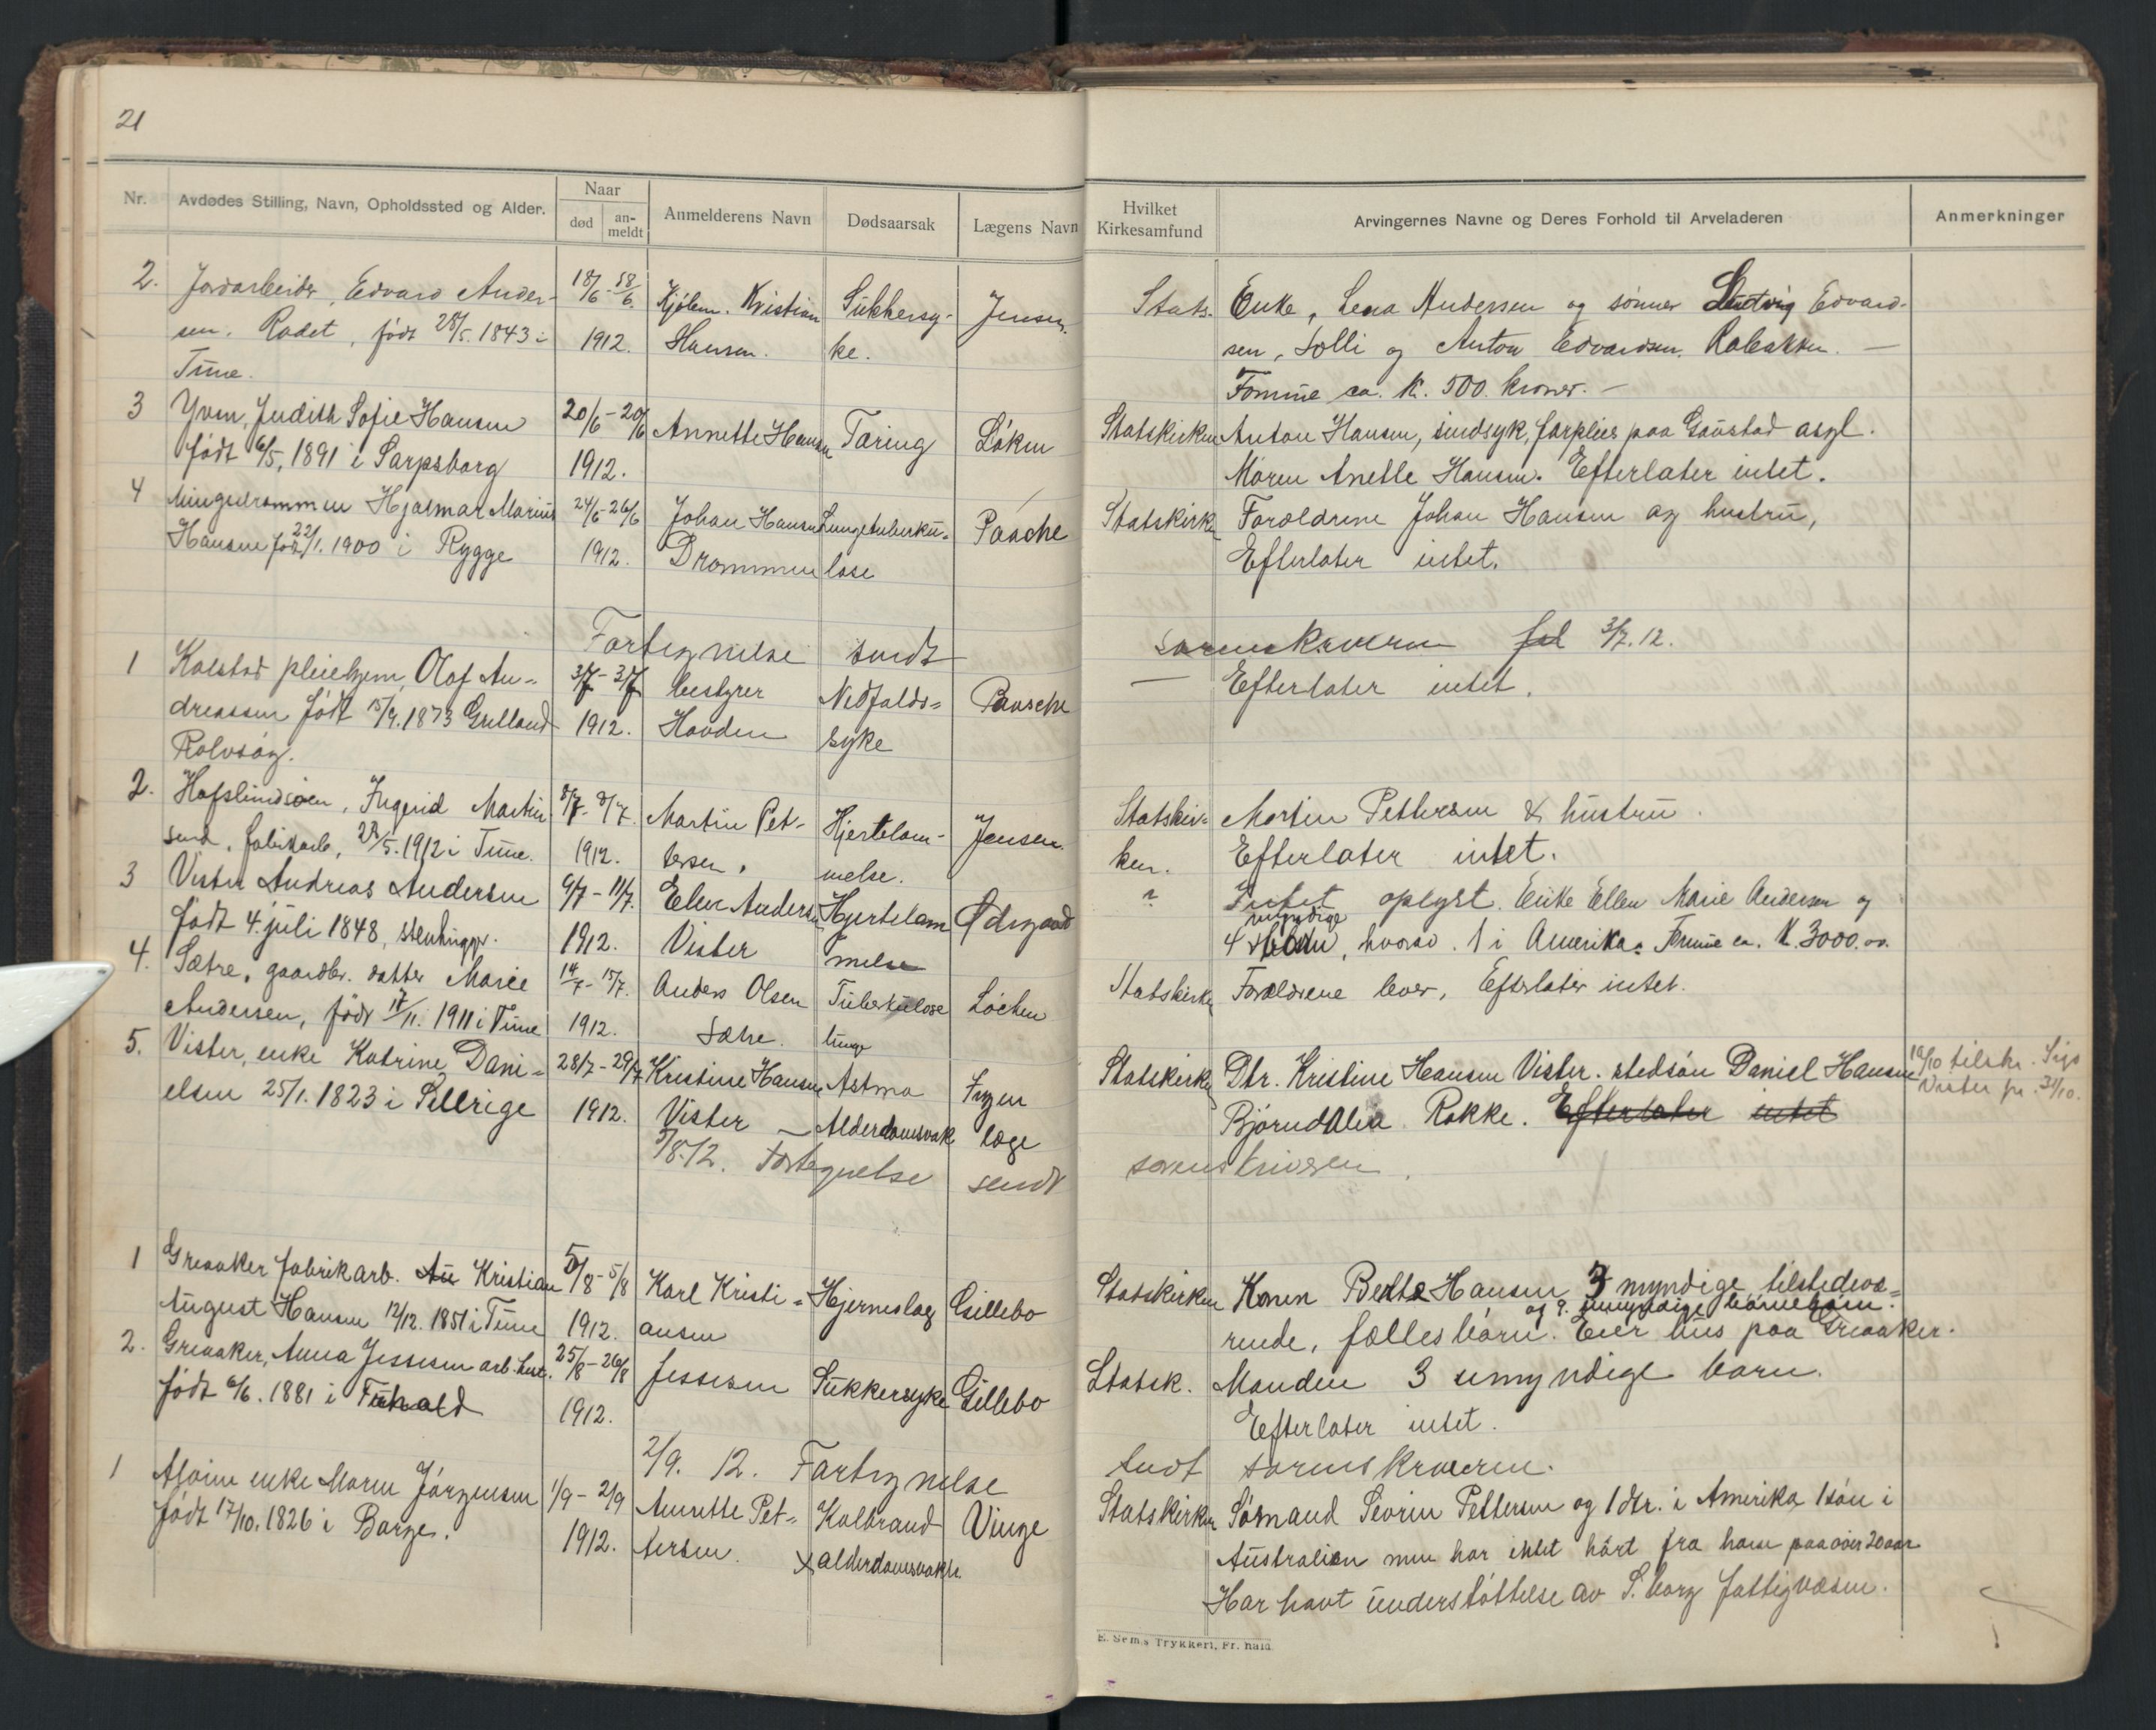 21
Nr.
Avdødes Stilling, Navn, Opholdssted og Alder.
Naar
død
an-
meldt
Anmelderens Navn
Dødsaarsak
Lægens Navn
Hvilket
Kirkesamfund
Arvingernes Navne og Deres Forhold til Arveladeren
Anmerkninger
2. Jordarbeider, Edvard Ander- 18/6 - 18/6. Kjølem. Kristian Sukkersy- Jensen. Stats. Enke, Lena Andersen og sønner Ludvig Edvard-
sen. Rødet, født 28/5. 1843 i 1912. Hansen. ke. sen, Solli og Anton Edvardsen, Rabakken. —
Tune. Formue ca. K. 500. kroner. —
3 Yven, Judith Sofie Hansen 20/6 - 20/6 Annette Hansen Tæring Løken Statskirken Anton Hansen, sindsyk, forpleies paa Gaustad asyl.
født 6/5, 1891 i Sarpsborg 1912. Moren Anette Hansen. Efterlater intet.
4 Mingedrammen Hjalmar Marius 24/6 - 26/6 Johan Hansen Lungetuberku- Paasche Statskirken Forældrene Johan Hansen og hustru,
Hansen født 22/1. 1900 i Rygge 1912. Drammen lose Efterlater intet.
Fortegnelse sendt sorenskriveren 3/7. 12.
1 Kalstad pleiehjem, Olaf An- 3/7 - 3/7 bestyrer Nedfalds- Paasche — Efterlater intet.
dreassen født 15/9. 1873 1912. Hovden syke
Rolvsøy.
2. Hafslundsøen, Ingerid Martin 8/7 - 9/7. Martin Pet- Hjertelam- Jensen. Statskir- Martin Pettersen & hustru.
send, fabrikarb, 1912 i Tune. 1912. tersen, melse. ken. Efterlater intet.
3 Vister Andreas Andersen 9/7 - 11/7. Elen Andersen Hjertelam Ødegaard ? Intet oplyst. Enke Ellen Marie Andersen og
født 4. juli 1848, stenhugger. 1912. Vister melse 4 myndige, hvorav 1 i Amerika. Formue ca. K. 3000.00.
4. Sætre, gaardbr. datter Marie 14/7 - 15/7. Anders Olsen Tuberkulose Løchen Statskirken Forældrene lever, Efterlater intet.
Andersen, født 1911 i Tune 1912. Sætre. lunge
5. Vister, enke Katrine Dani- 28/7 - 29/7 Kristine Hansen Astma Ingen Statskirken Dtr. Kristine Hansen Vister. stedsøn Daniel Hansen 10/10 tilskr.
elsen 25/1. 1823 i 1912. Vister — Alderdomsvak læge Bjørndalen Rokke. Efterlater intet Vister 31/10.
8-12. Fortegnelse sendt sorenskriveren.
1 Greaaker fabrikarb. Kristian 5/8 - 5/8 Karl Kristi- Hjerneslag Gillebo Statskirken Konen Berthe Hansen 3 myndige tilstedevæ-
August Hansen 12/12. 1851 i Tune 1912. ansen rende, fællesbørn. og 9. umyndige børnebørn. Eier hus paa Greaaker.
2. Greaaker, Anna Jessesen arb. hust. 25/8 - 26/8 Jessesen Sukkersyke Gillebo Statsk. Manden 3 umyndige barn.
født 6/6. 1881 i 1912. Efterlater intet.
2/9. 12. Fortegnelse sendt sorenskriveren.
1 Moine enke Maren Jørgensen 1/9 - 2/9 Annette Pet- Kolbrand Vinge Statskirken Sømand Severin Pettersen og 1 dtr. i Amerika 1 søn i
født 17/10. 1826 i Borge. 1912. tersen. x alderdomsvakh. Australien men har ikket hørt fra ham paa over 20 aar
Har havt understøttelse av S. borg fattigvæsen.
E. Sems Trykkeri, Fr. hald.